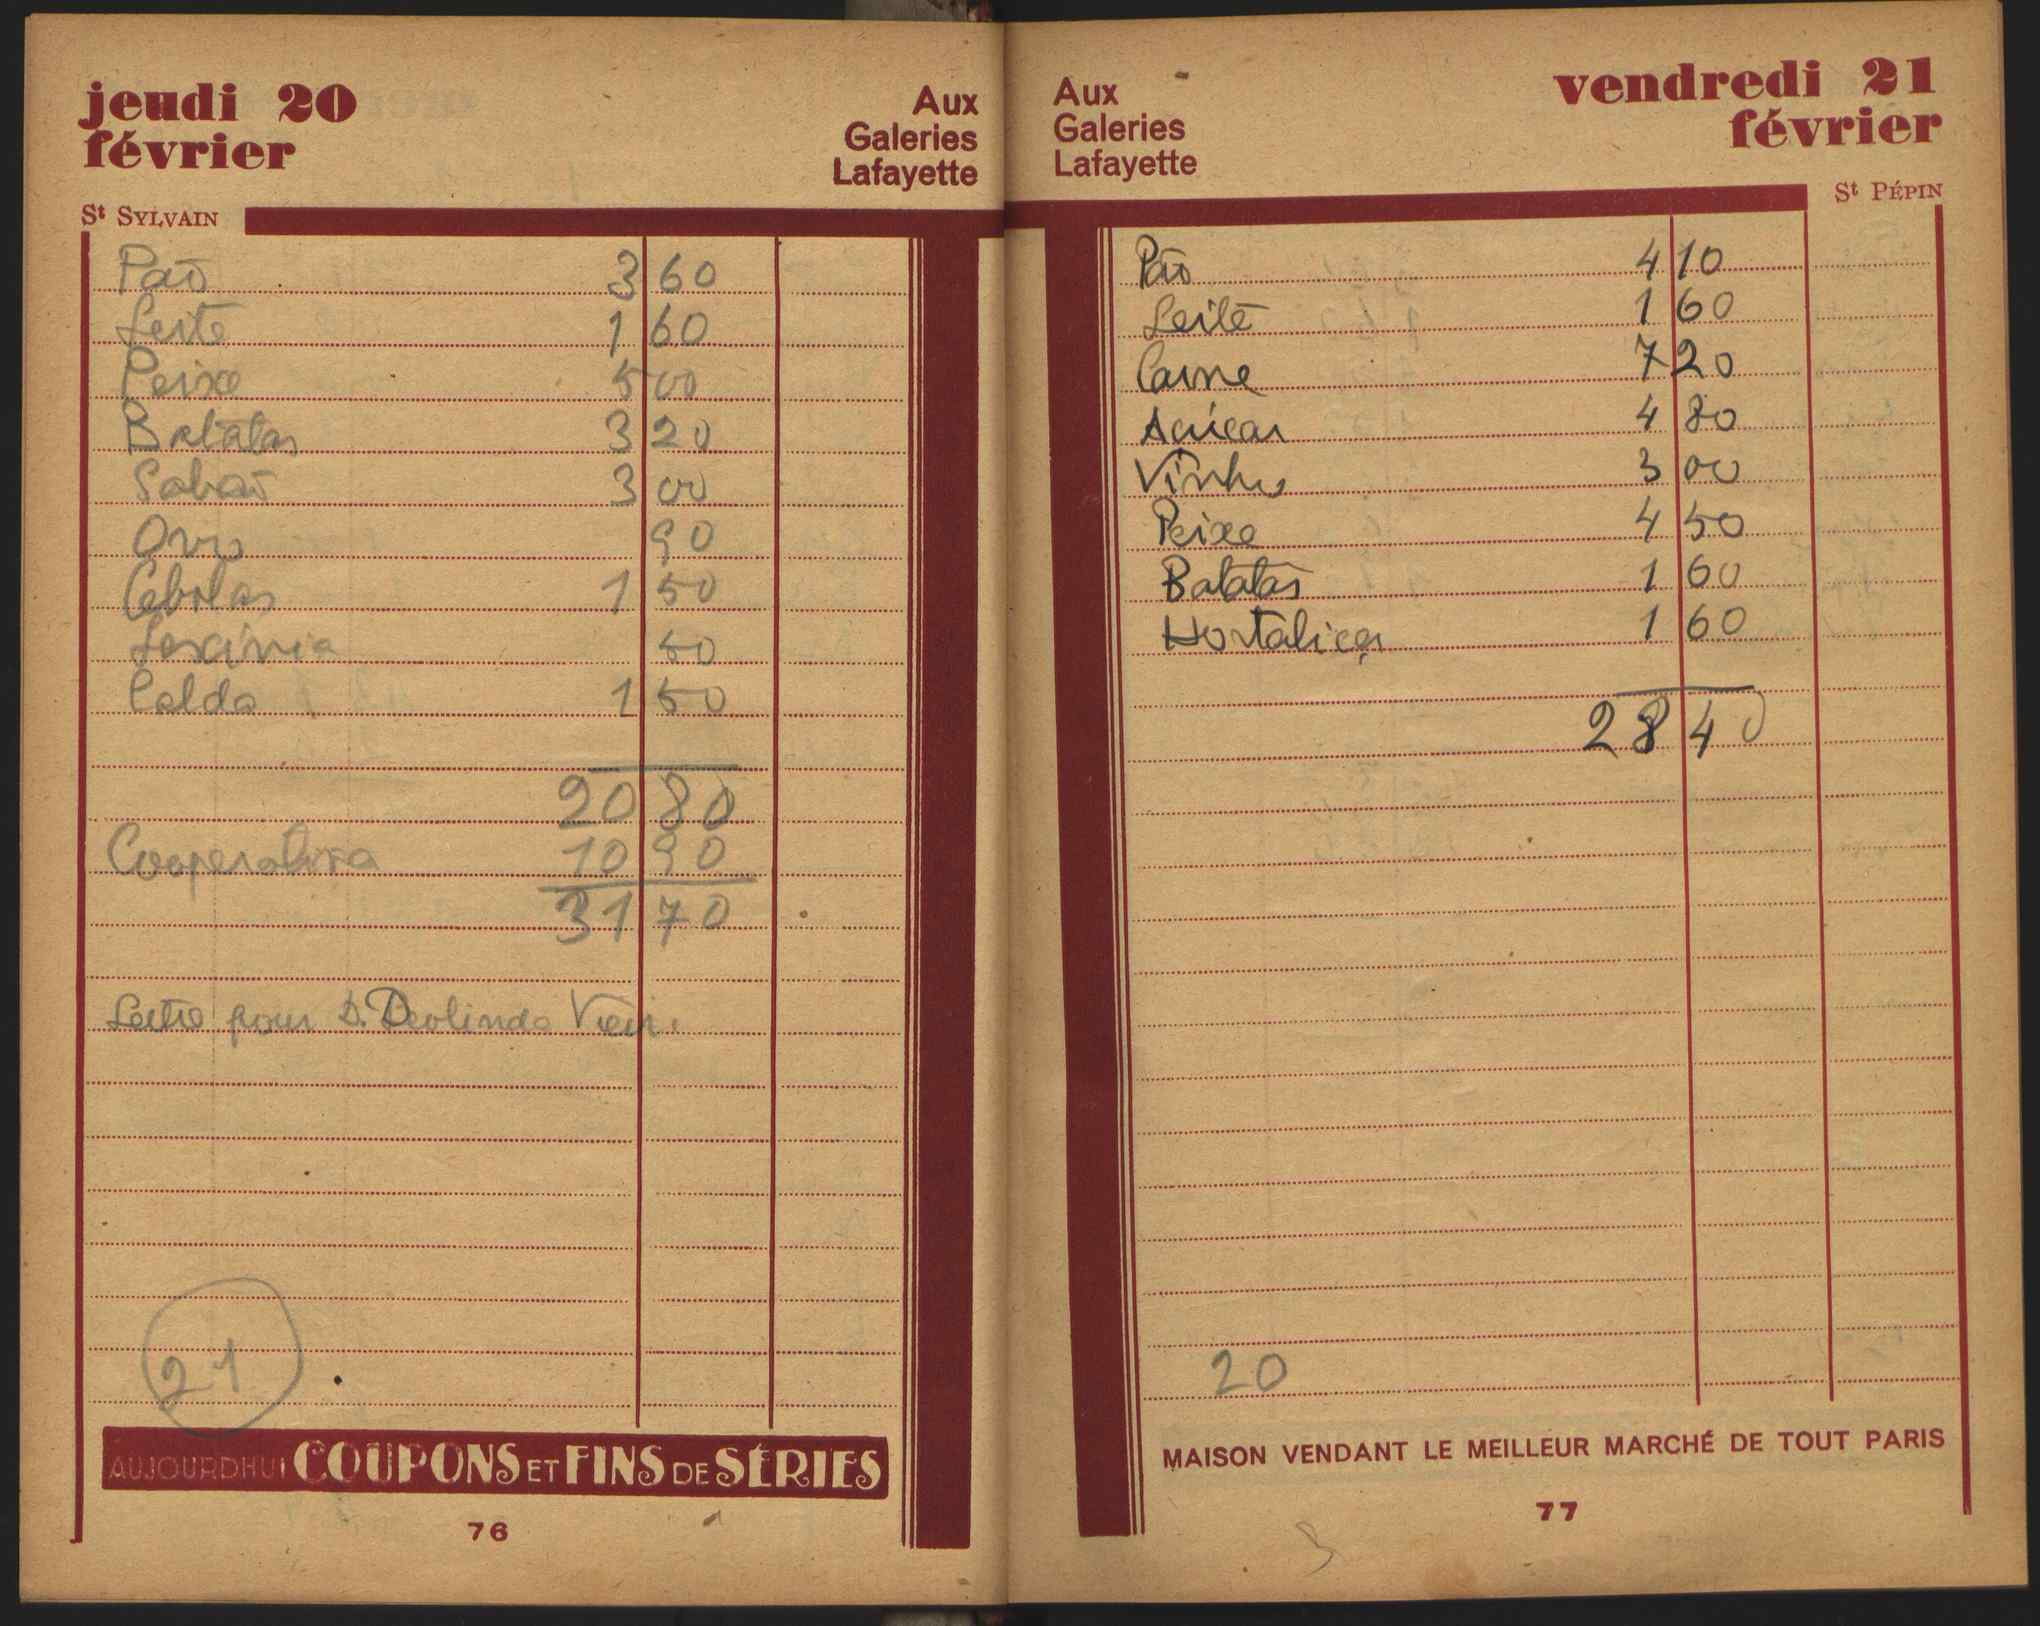 jeudi 20
février
Aux
Galeries
Lafayette
St SYLVAIN
Pão 3 60
Leite 1 60
Peixe 5 00
Batatas 3 20
Sabão 3 00
Ovo 90
Cebolas 1 50
Lexivia 50
Calda 1 50
20 80
Cooperativa 10 90
31 70
Lettre pour D. Deolinda Vieira
21
AUJOURDHUI COUPONS ET FINS DE SÉRIES
76
Aux
Galeries
Lafayette
vendredi 21
février
St PÉPIN
Pão 4 10
Leite 1 60
Carne 7 20
Açúcar 4 80
Vinho 3 00
Peixe 4 50
Batatas 1 60
Hortaliça 1 60
28 40
20
MAISON VENDANT LE MEILLEUR MARCHÉ DE TOUT PARIS
77